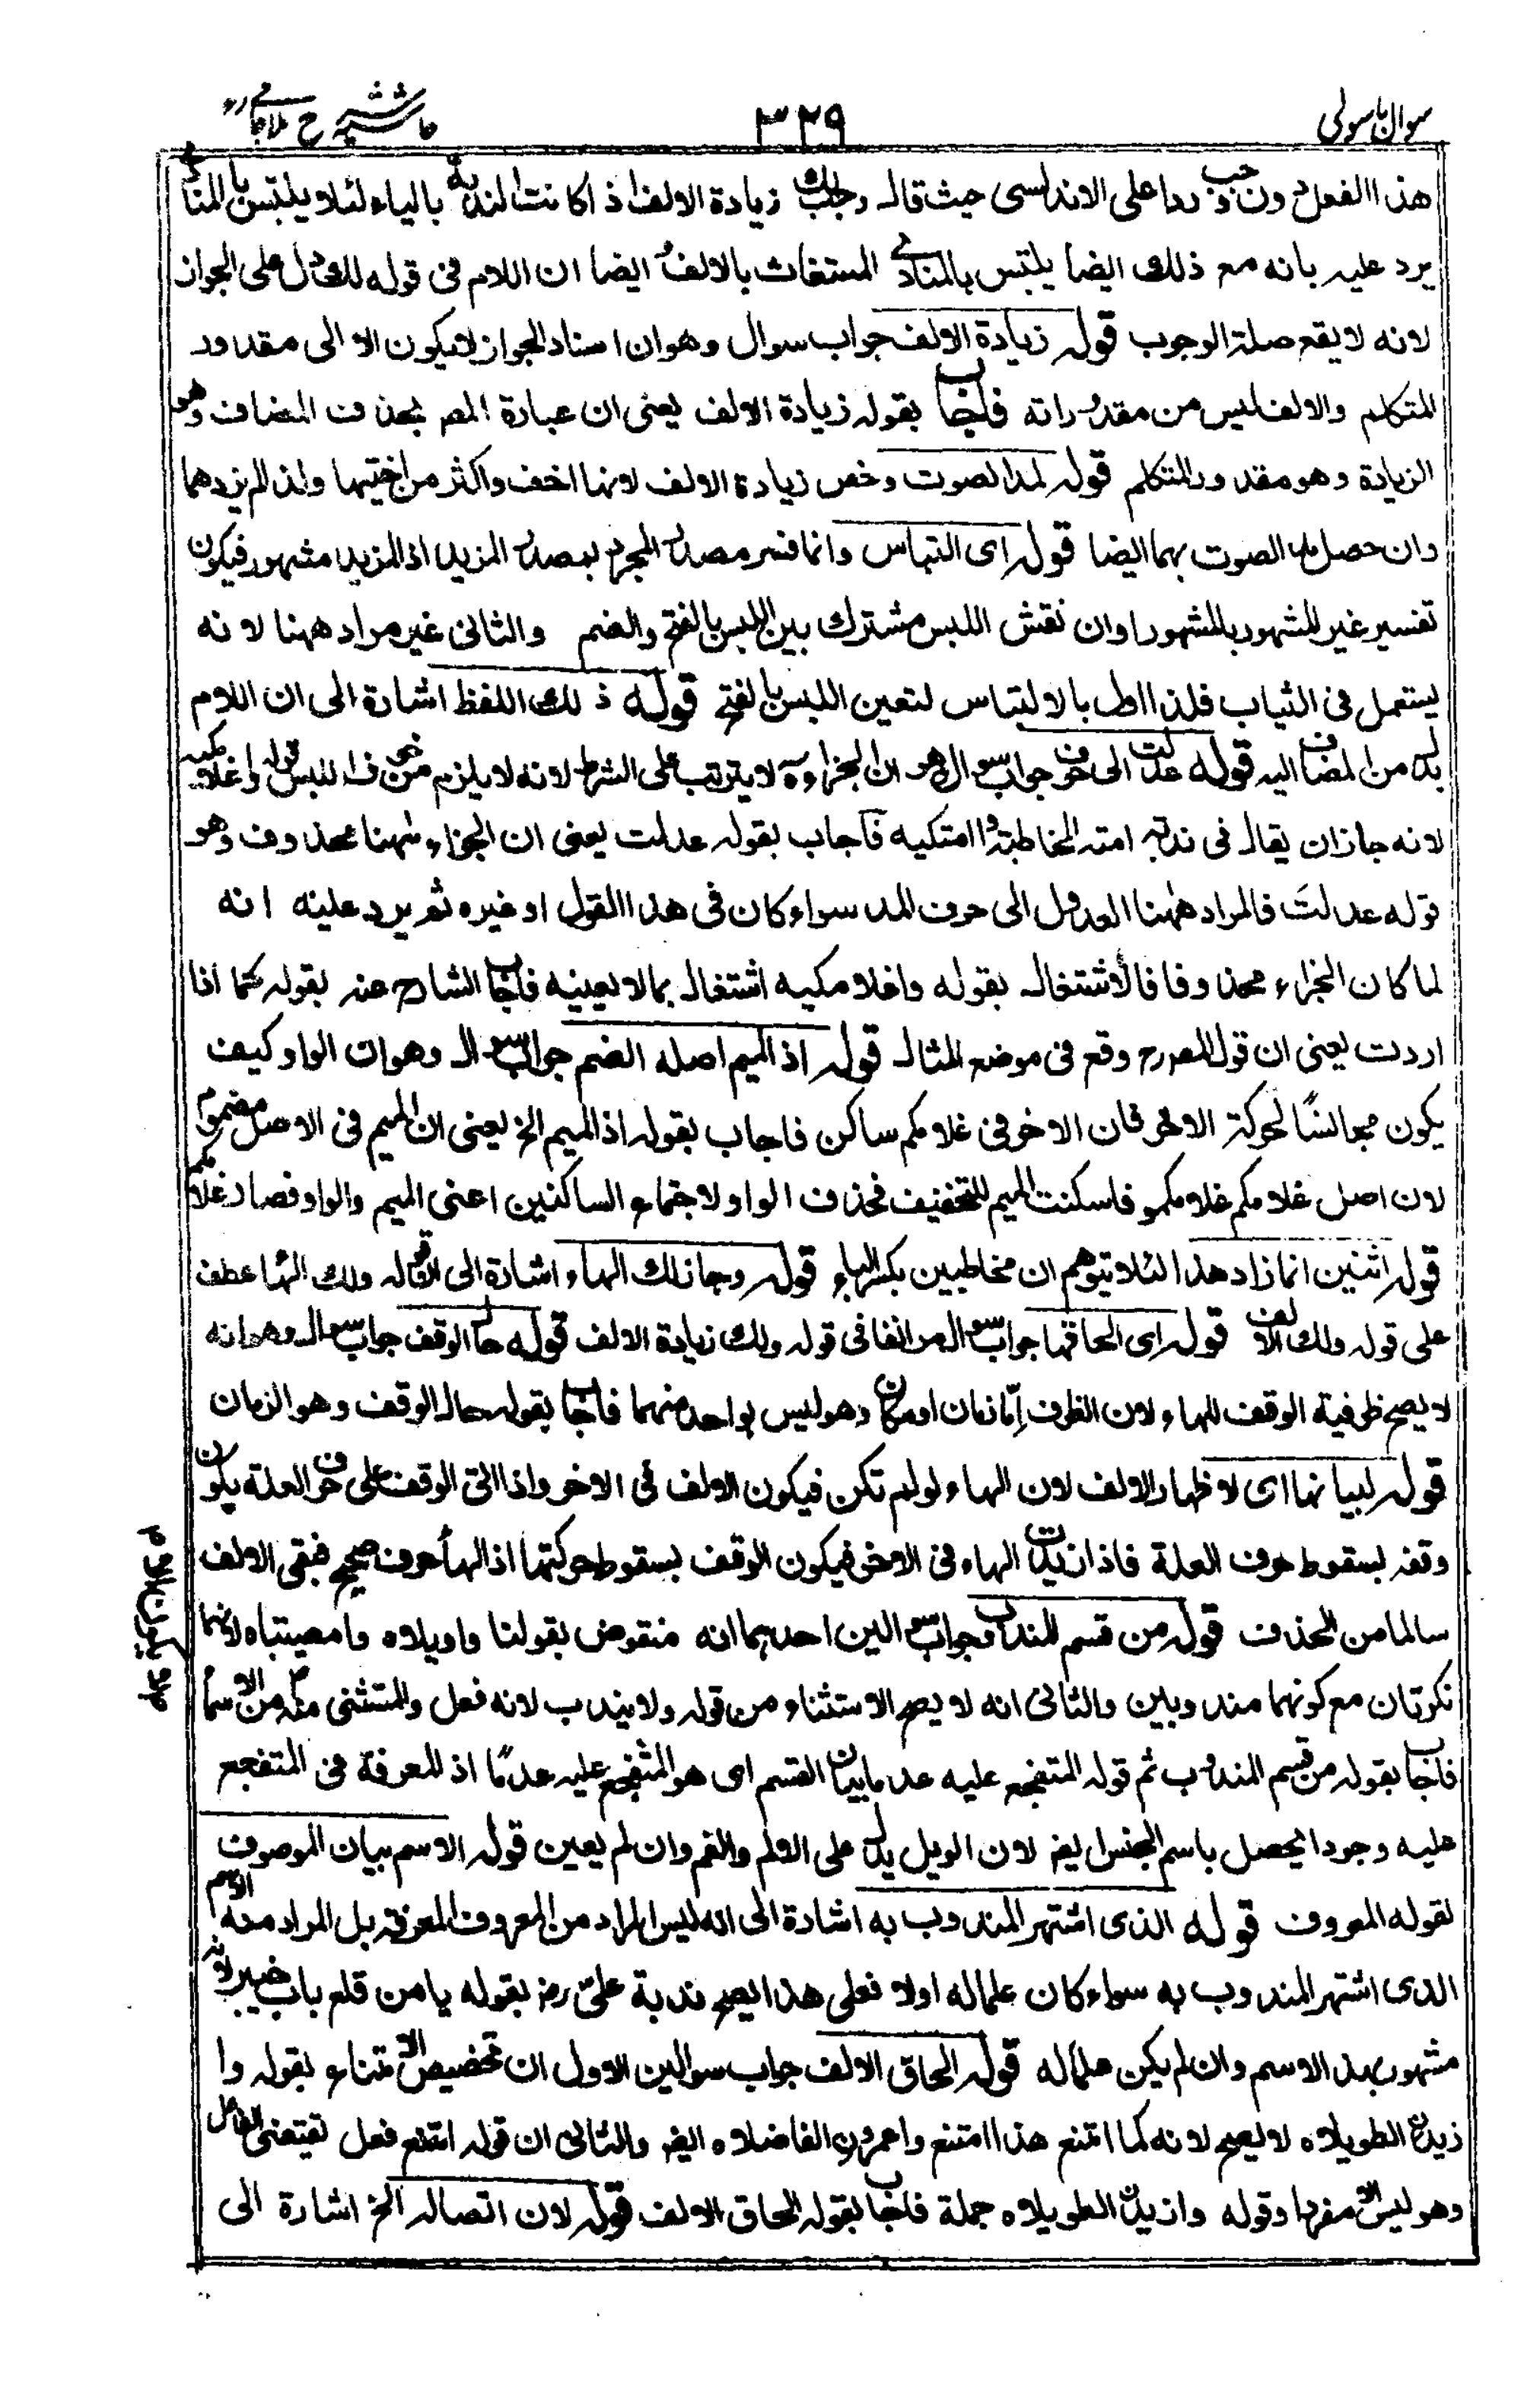 سوال باسولی
٣٢٩
حاشیه شرح ملاجامی
هذا الفعل دون وجب ردا على الاندلسی حیث قال وجلك زیادة الالف اذا كانت الندبة بالیاء لئلا یلتبس بالمنادى
یرد علیه بانه مع ذلك ایضا یلتبس بالمنادى المستغاث بالالف ایضا ان اللام فی قوله لك دال على الجواز
لانه لا یقع صلة الوجوب قوله زیادة الالف جواب سوال وهو ان اسناد الجواز لا یكون الا الى مقدور
المتكلم والالف لیس من مقدوراته فاجاب بقوله زیادة الالف یعنی ان عبارة المص بحذف المضاف وهو
الزیادة وهو مقدور المتكلم قوله لمد الصوت وخص زیادة الالف لانها اخف واكثر من اختیها ولذا لم یزدهما
وان حصل مد الصوت بهما ایضا قوله ای التباس وانما فسر مصدر المجرد بمصدر المزید اذ المزید مشهور فیكون
تفسیر غیر المشهور بالمشهور اوان نقش اللبس مشترك بین اللبس بالفتح والضم والثانی غیر مراد ههنا لانه
یستعمل فی الثیاب فلذا اول بالالتباس لتعین اللبس بالفتح قوله ذلك اللفظ اشارة الى ان اللام
بدل من المضاف الیه قوله عدلت الى حرف جواب سوال وهو ان الجزاء لا یترتب على الشرط لانه لا یلزم من خوف اللبس قوله واغلامكیه
لانه جاز ان یقال فی ندبة امة المخاطبة وا امتكیه فاجاب بقوله عدلت یعنی ان الجزاء ههنا محذوف وهو
قوله عدلت فالمراد ههنا العدول الى حرف المد سواء كان فی هذا القول او غیره ثم یرد علیه انه
لما كان الجزاء محذوفا فالاشتغال بقوله واغلامكیه اشتغال بما لا یعنیه فاجاب الشارح عنه بقوله كما اذا
اردت یعنی ان قول المص رح وقع فی موضع المثال قوله اذ المیم اصله الضم جواب سوال وهو ان الواو كیف
یكون مجانسًا لحركة الاخر فان الاخر فی غلامكم ساكن فاجاب بقوله اذ المیم الخ یعنی ان المیم فی الاصل مضموم
لان اصل غلامكم غلامكمو فاسكنت المیم للتخفیف فحذف الواو لاجتماع الساكنین اعنی المیم والواو فصار غلامكم
قوله اثنین انما زاد هذا لئلا یتوهم ان مخاطبین بكسر الباء قوله وجاز لك الهاء اشارة الى ان قوله ولك الهاء عطف
على قوله ولك الالف قوله ای الحاقها جواب سوال مر انفا فی قوله ولك زیادة الالف قوله حال الوقف جواب سوال وهو انه
لا یصح ظرفیة الوقف للهاء لان الظرف إمّا زمان او مكان وهو لیس بواحد منهما فاجاب بقوله حال الوقف وهو الزمان
قوله لبیانها ای لاظهار الالف لان الهاء لو لم تكن فیكون الالف فی الاخر واذا اتی الوقف على حرف العلة یكون
وقفه بسقوط حرف العلة فاذا زیدت الهاء فی الاخر فیكون الوقف بسقوط حركتها اذ الهاء حرف صحیح فبقی الالف
سالما من الحذف قوله من قسم المندوب جواب سوالین احدهما انه منقوض بقولنا واویلاه وامصیبتاه لانهما
نكرتان مع كونهما مندوبین والثانی انه لا یصح الاستثناء من قوله ولا یندب لانه فعل والمستثنى منه من الاسماء
فاجاب بقوله من قسم المندوب ثم قوله المتفجع علیه عدما بیان القسم ای هو المتفجع علیه عدمًا اذ المعرفة فی المتفجع
علیه وجودا یحصل باسم الجنس ایض لان الویل یدل على الالم والغم وان لم یعین قوله الاسم بیان الموصوف
لقوله المعروف قوله الذی اشتهر المندوب به اشارة الى انه لیس المراد من المعروف المعرفة بل المراد منه الاسم
الذی اشتهر المندوب به سواء كان علما له اولا فعلى هذا یصح ندبة علیّ رض بقوله یا من قلع باب خیبر لانه
مشهور بهذا الاسم وان لم یكن علما له قوله الحاق الالف جواب سوالین الاول ان تخصیص الامتناع بقوله وا
زید الطویلاه لا یصح لانه كما امتنع هذا امتنع واعمرو الفاضلاه ایض والثانی ان قوله امتنع فعل تقتضی الفاعل
وهو لیس الا مفردا وقوله وازید الطویلاه جملة فاجاب بقوله الحاق الالف قوله لان اتصاله الخ اشارة الى